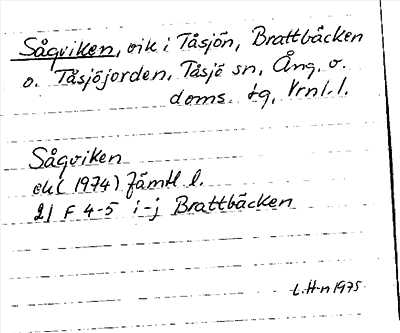 Sågviken, vik i Tåsjön, Brattbäcken
o. Tåsjöjorden, Tåsjö sn, Ång. v.
doms. tg, Vrnl. l.
Sågviken
ek (1974) Jämtl l.
21 F 4-5 i-j Brattbäcken
L.H-n 1975